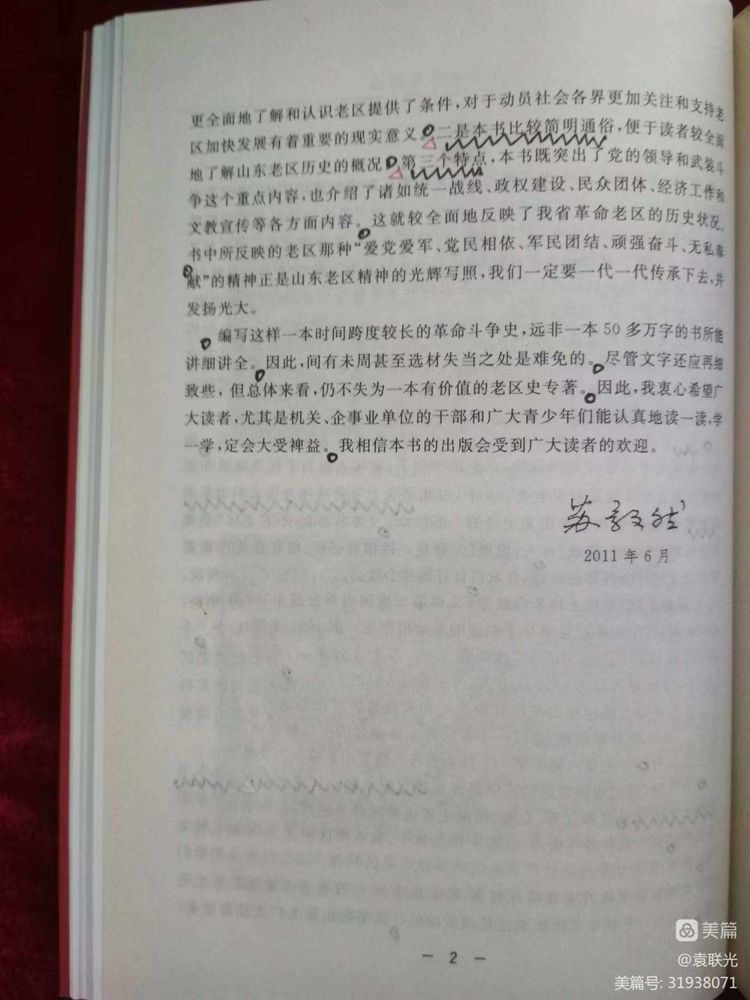 更全面地了解和认识老区提供了条件，对于动员社会各界更加关注和支持老
区加快发展有着重要的现实意义。二是本书比较简明通俗，便于读者较全面
地了解山东老区历史的概况。第三个特点，本书既突出了党的领导和武装斗
争这个重点内容，也介绍了诸如统一战线、政权建设、民众团体、经济工作和
文教宣传等各方面内容。这就较全面地反映了我省革命老区的历史状况。
书中所反映的老区那种“爱党爱军、党民相依、军民团结、顽强奋斗、无私奉
献”的精神正是山东老区精神的光辉写照，我们一定要一代一代传承下去，并
发扬光大。
编写这样一本时间跨度较长的革命斗争史，远非一本50多万字的书所能
讲细讲全。因此，间有未周甚至选材失当之处是难免的。尽管文字还应再细
致些，但总体来看，仍不失为一本有价值的老区史专著。因此，我衷心希望广
大读者，尤其是机关、企事业单位的干部和广大青少年们能认真地读一读，学
一学，定会大受裨益。我相信本书的出版会受到广大读者的欢迎。
苏毅然
2011年6月
— 2 —
美篇
@袁联光
美篇号: 31938071